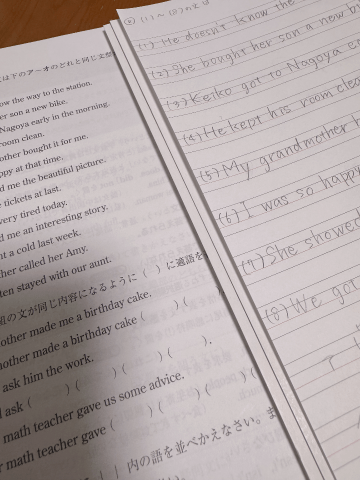 は下のア〜オのどれと同じ文型
ow the way to the station.
er son a new bike.
Nagoya early in the morning.
room clean.
other bought it for me.
ppy at that time.
d me the beautiful picture.
e tickets at last.
very tired today.
d me an interesting story.
ht a cold last week.
ther called her Amy.
ten stayed with our aunt.
組の文が同じ内容になるように( )に適語を
other made me a birthday cake.
nother made a birthday cake ( ) (
ask him the work.
d ask ( ) ( ) ( ).
math teacher gave us some advice.
r math teacher gave ( ) ( ) (
内の語を並べかえなさい。
(1)〜(12)の文は
(1) He doesn't know the
(2) She bought her son a new bi
(3) Keiko got to Nagoya e
(4) He kept his room clea
(5) My grandmother b
(6) I was so happ
(7) She showed
(8) We got